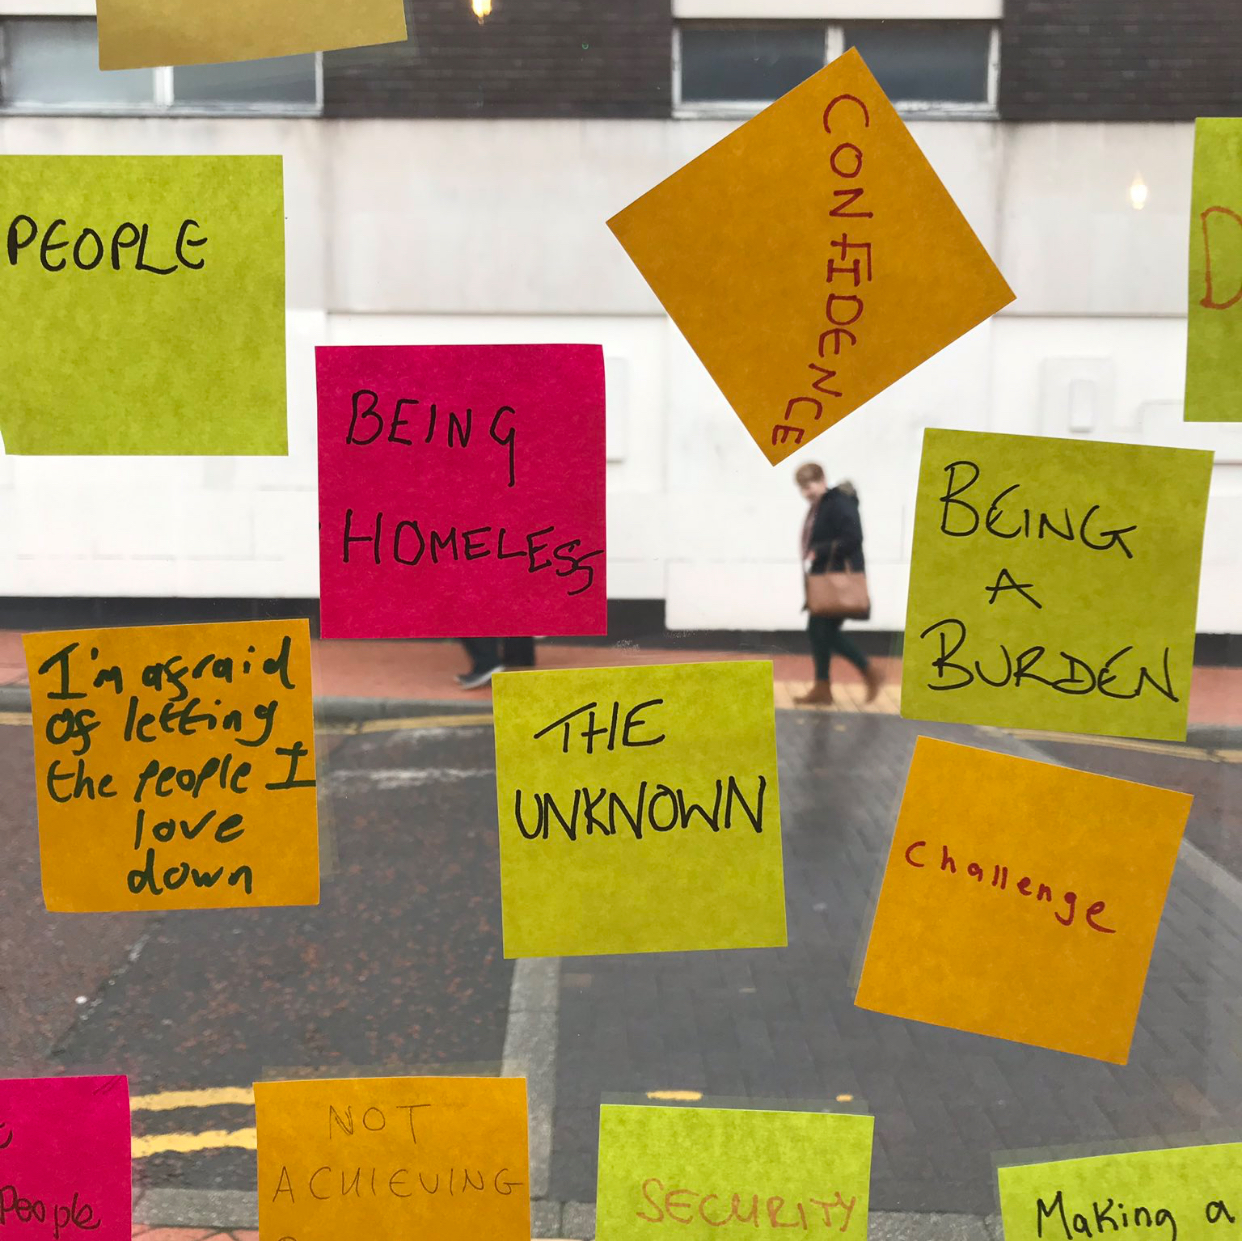 PEOPLE
CONFIDENCE
D
BEING
HOMELESS
BEING
A
BURDEN
I'm afraid
of letting
the people I
love
down
THE
UNKNOWN
Challenge
People
NOT
ACHIEVING
SECURITY
Making a